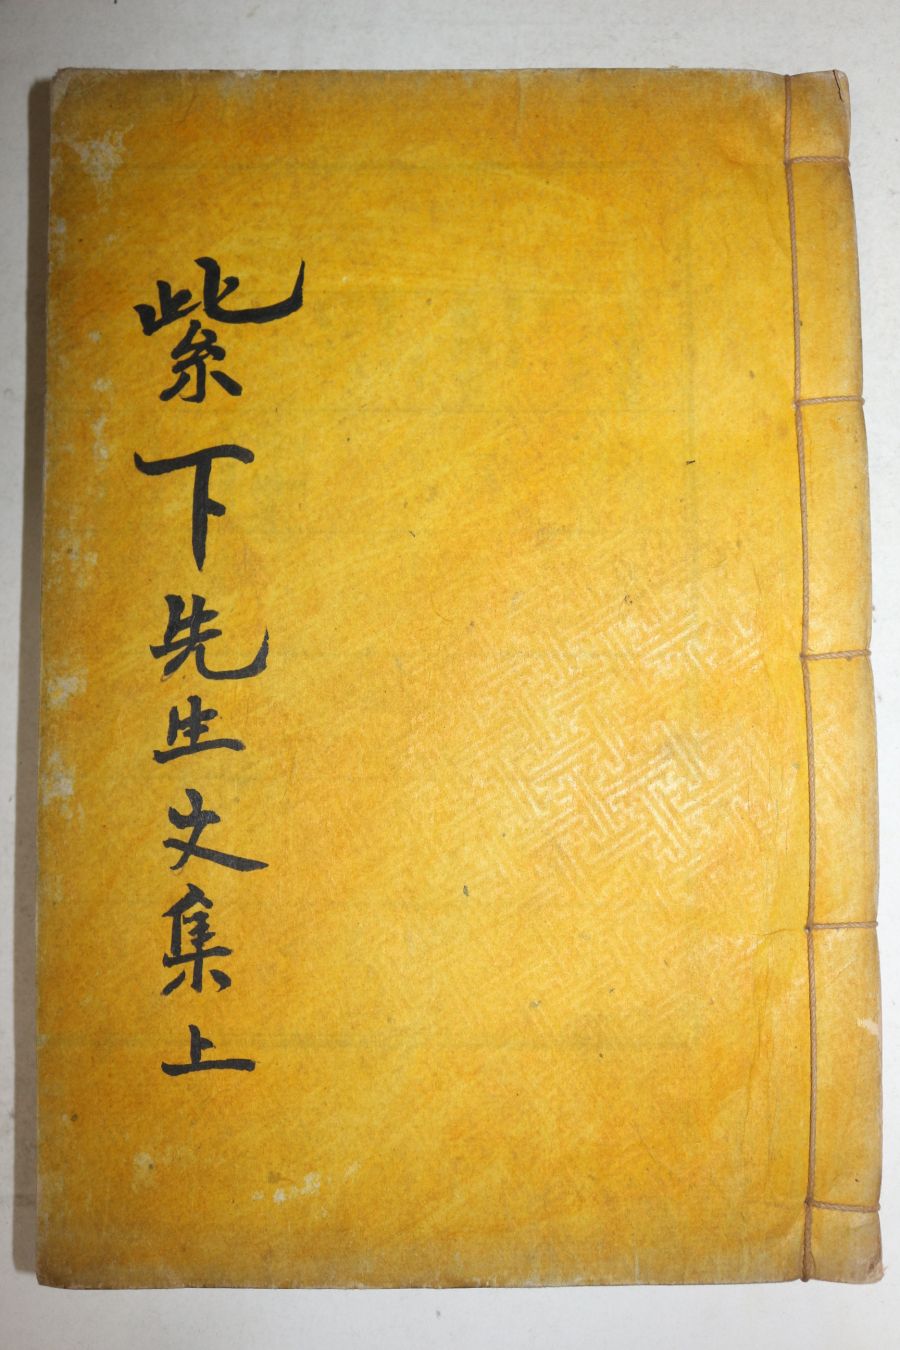 紫下先生文集上